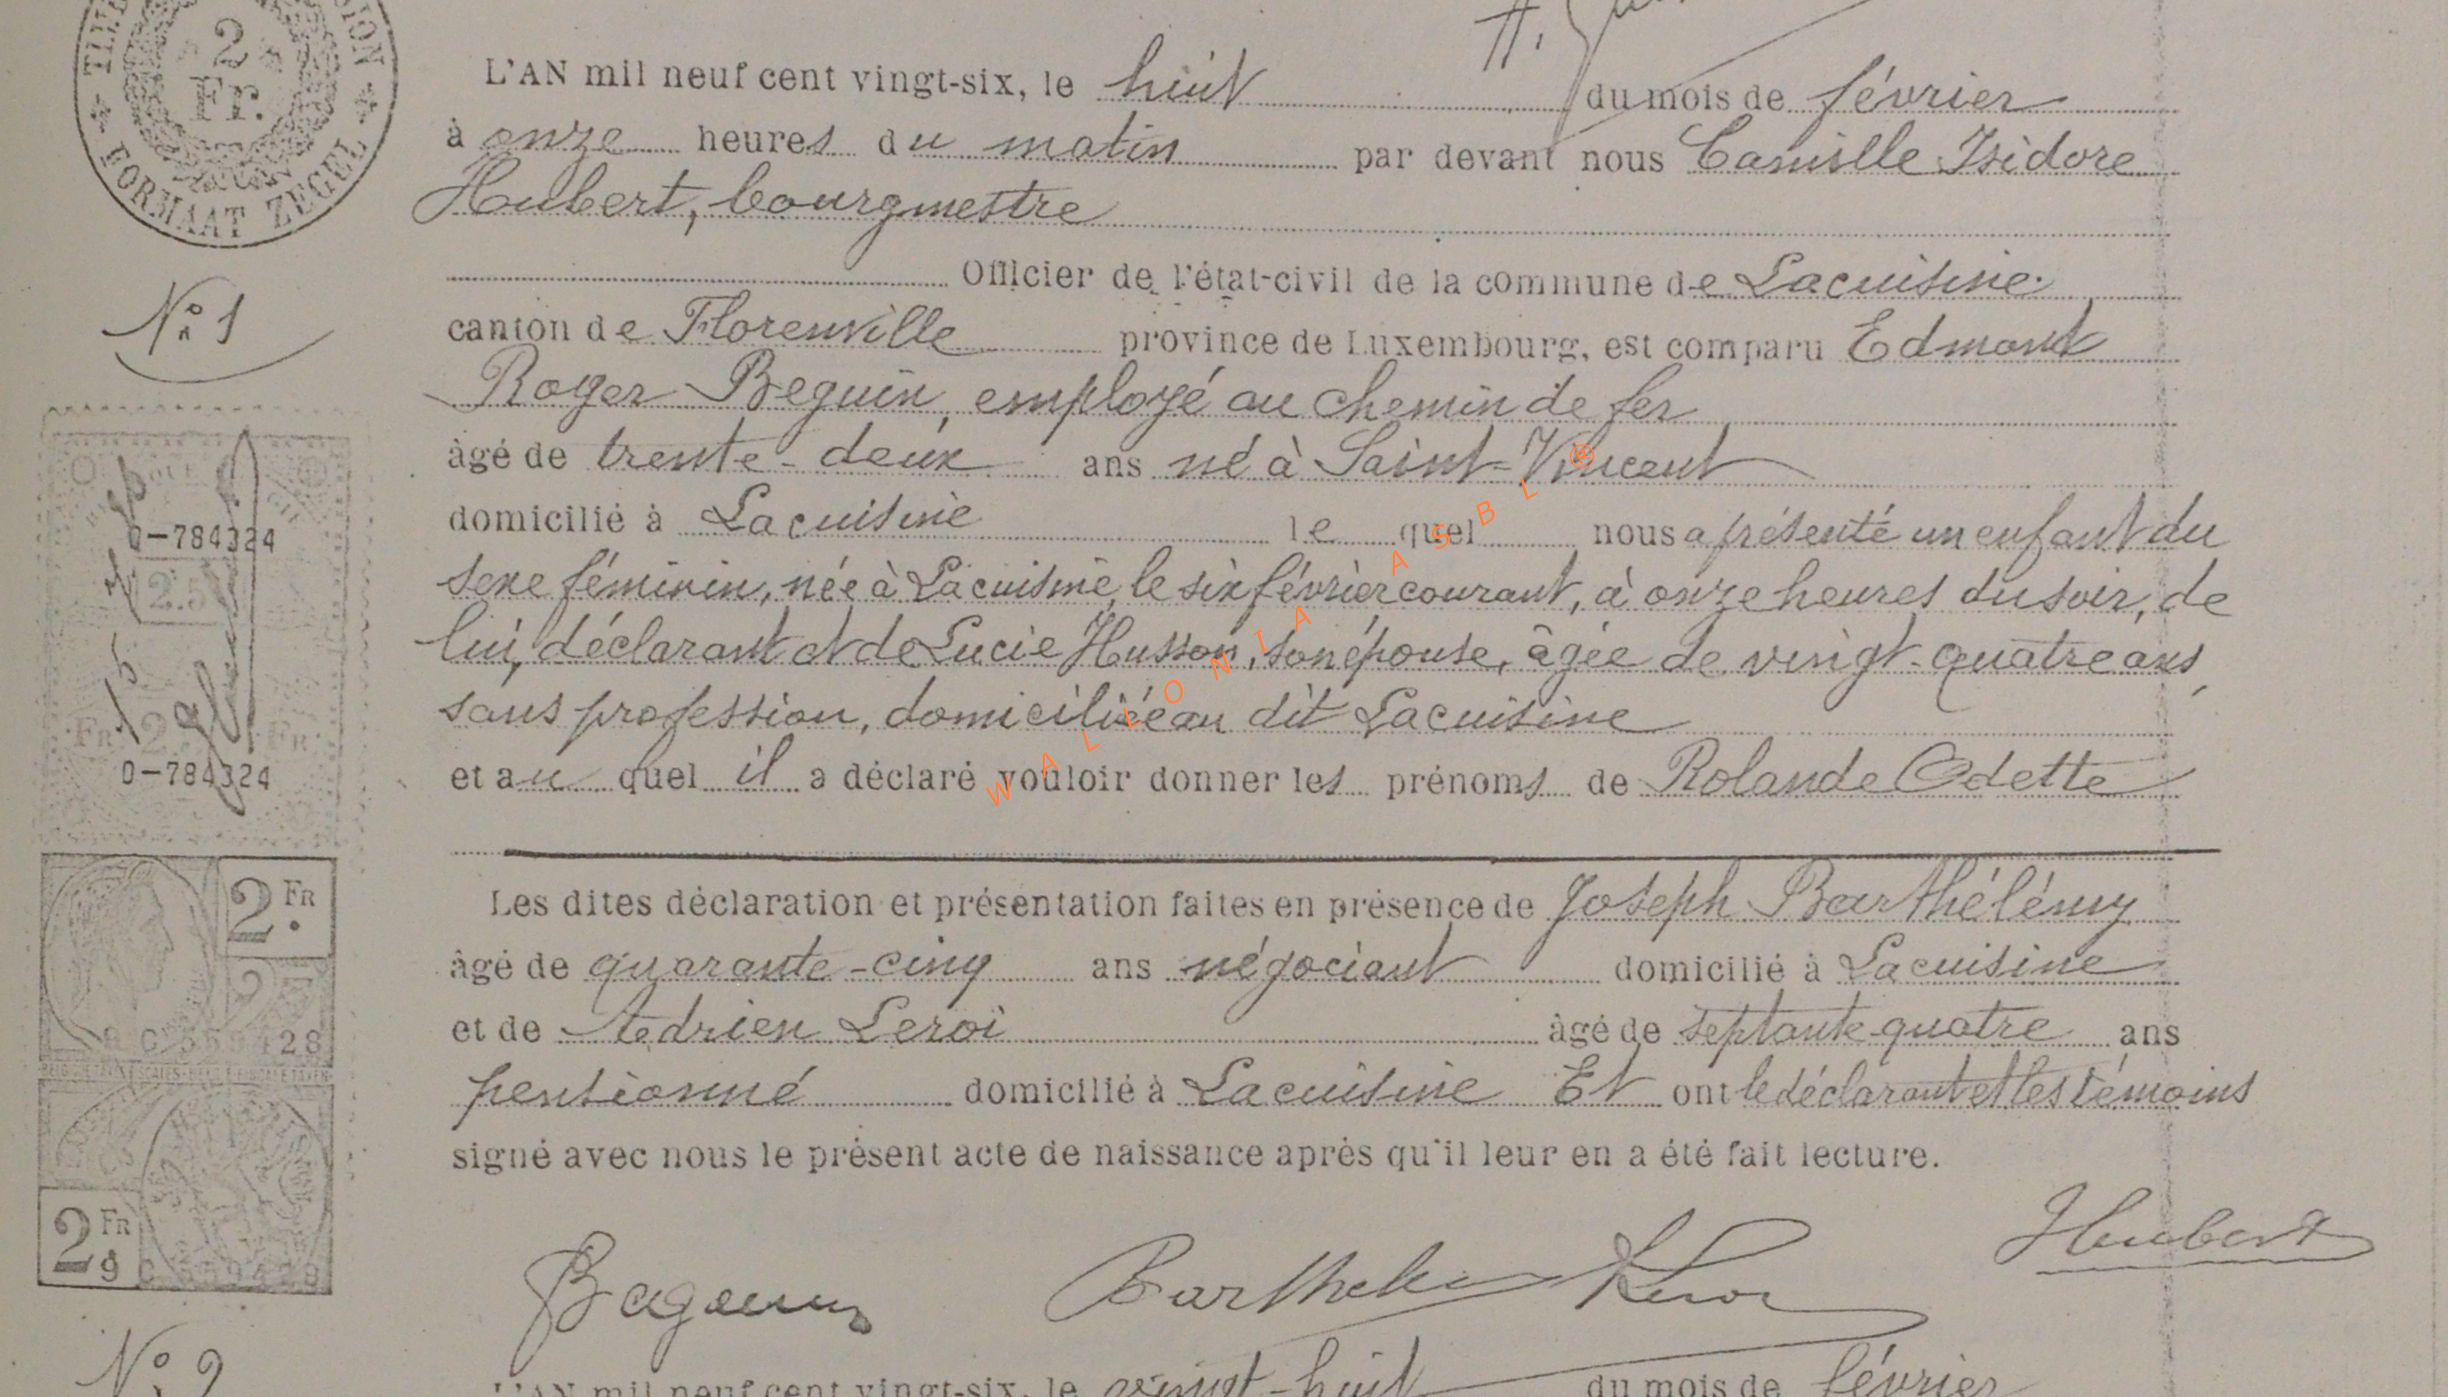 2
Fr.
FORMAAT ZEGEL
L'AN mil neuf cent vingt-six, le huit du mois de février
à onze heures du matin par devant nous Camille Isidore
Hubert, bourgmestre
Officier de l'état-civil de la commune de Lacuisine
canton de Florenville province de Luxembourg, est comparu Edmond
Roger Beguin, employé au chemin de fer
âgé de trente-deux ans né à Saint-Vincent
domicilié à Lacuisine lequel nous a présenté un enfant du
sexe féminin, née à Lacuisine, le six février courant, à onze heures du soir, de
lui, déclarant et de Lucie Husson, son épouse, âgée de vingt-quatre ans,
sans profession, domiciliée au dit Lacuisine
et au quel il a déclaré vouloir donner les prénoms de Rolande Odette
Les dites déclaration et présentation faites en présence de Joseph Barthélémy
âgé de quarante-cinq ans négociant domicilié à Lacuisine
et de Adrien Leroi âgé de septante-quatre ans
pensionné domicilié à Lacuisine Et ont le déclarant et les témoins
signé avec nous le présent acte de naissance après qu'il leur en a été fait lecture.
Hubert
N° 1
0-784324
2.5
0-784324
2 FR
2 FR
N° 2
L'AN mil neuf cent vingt-six, le vingt-huit du mois de février
WALLONIA ASBL ®